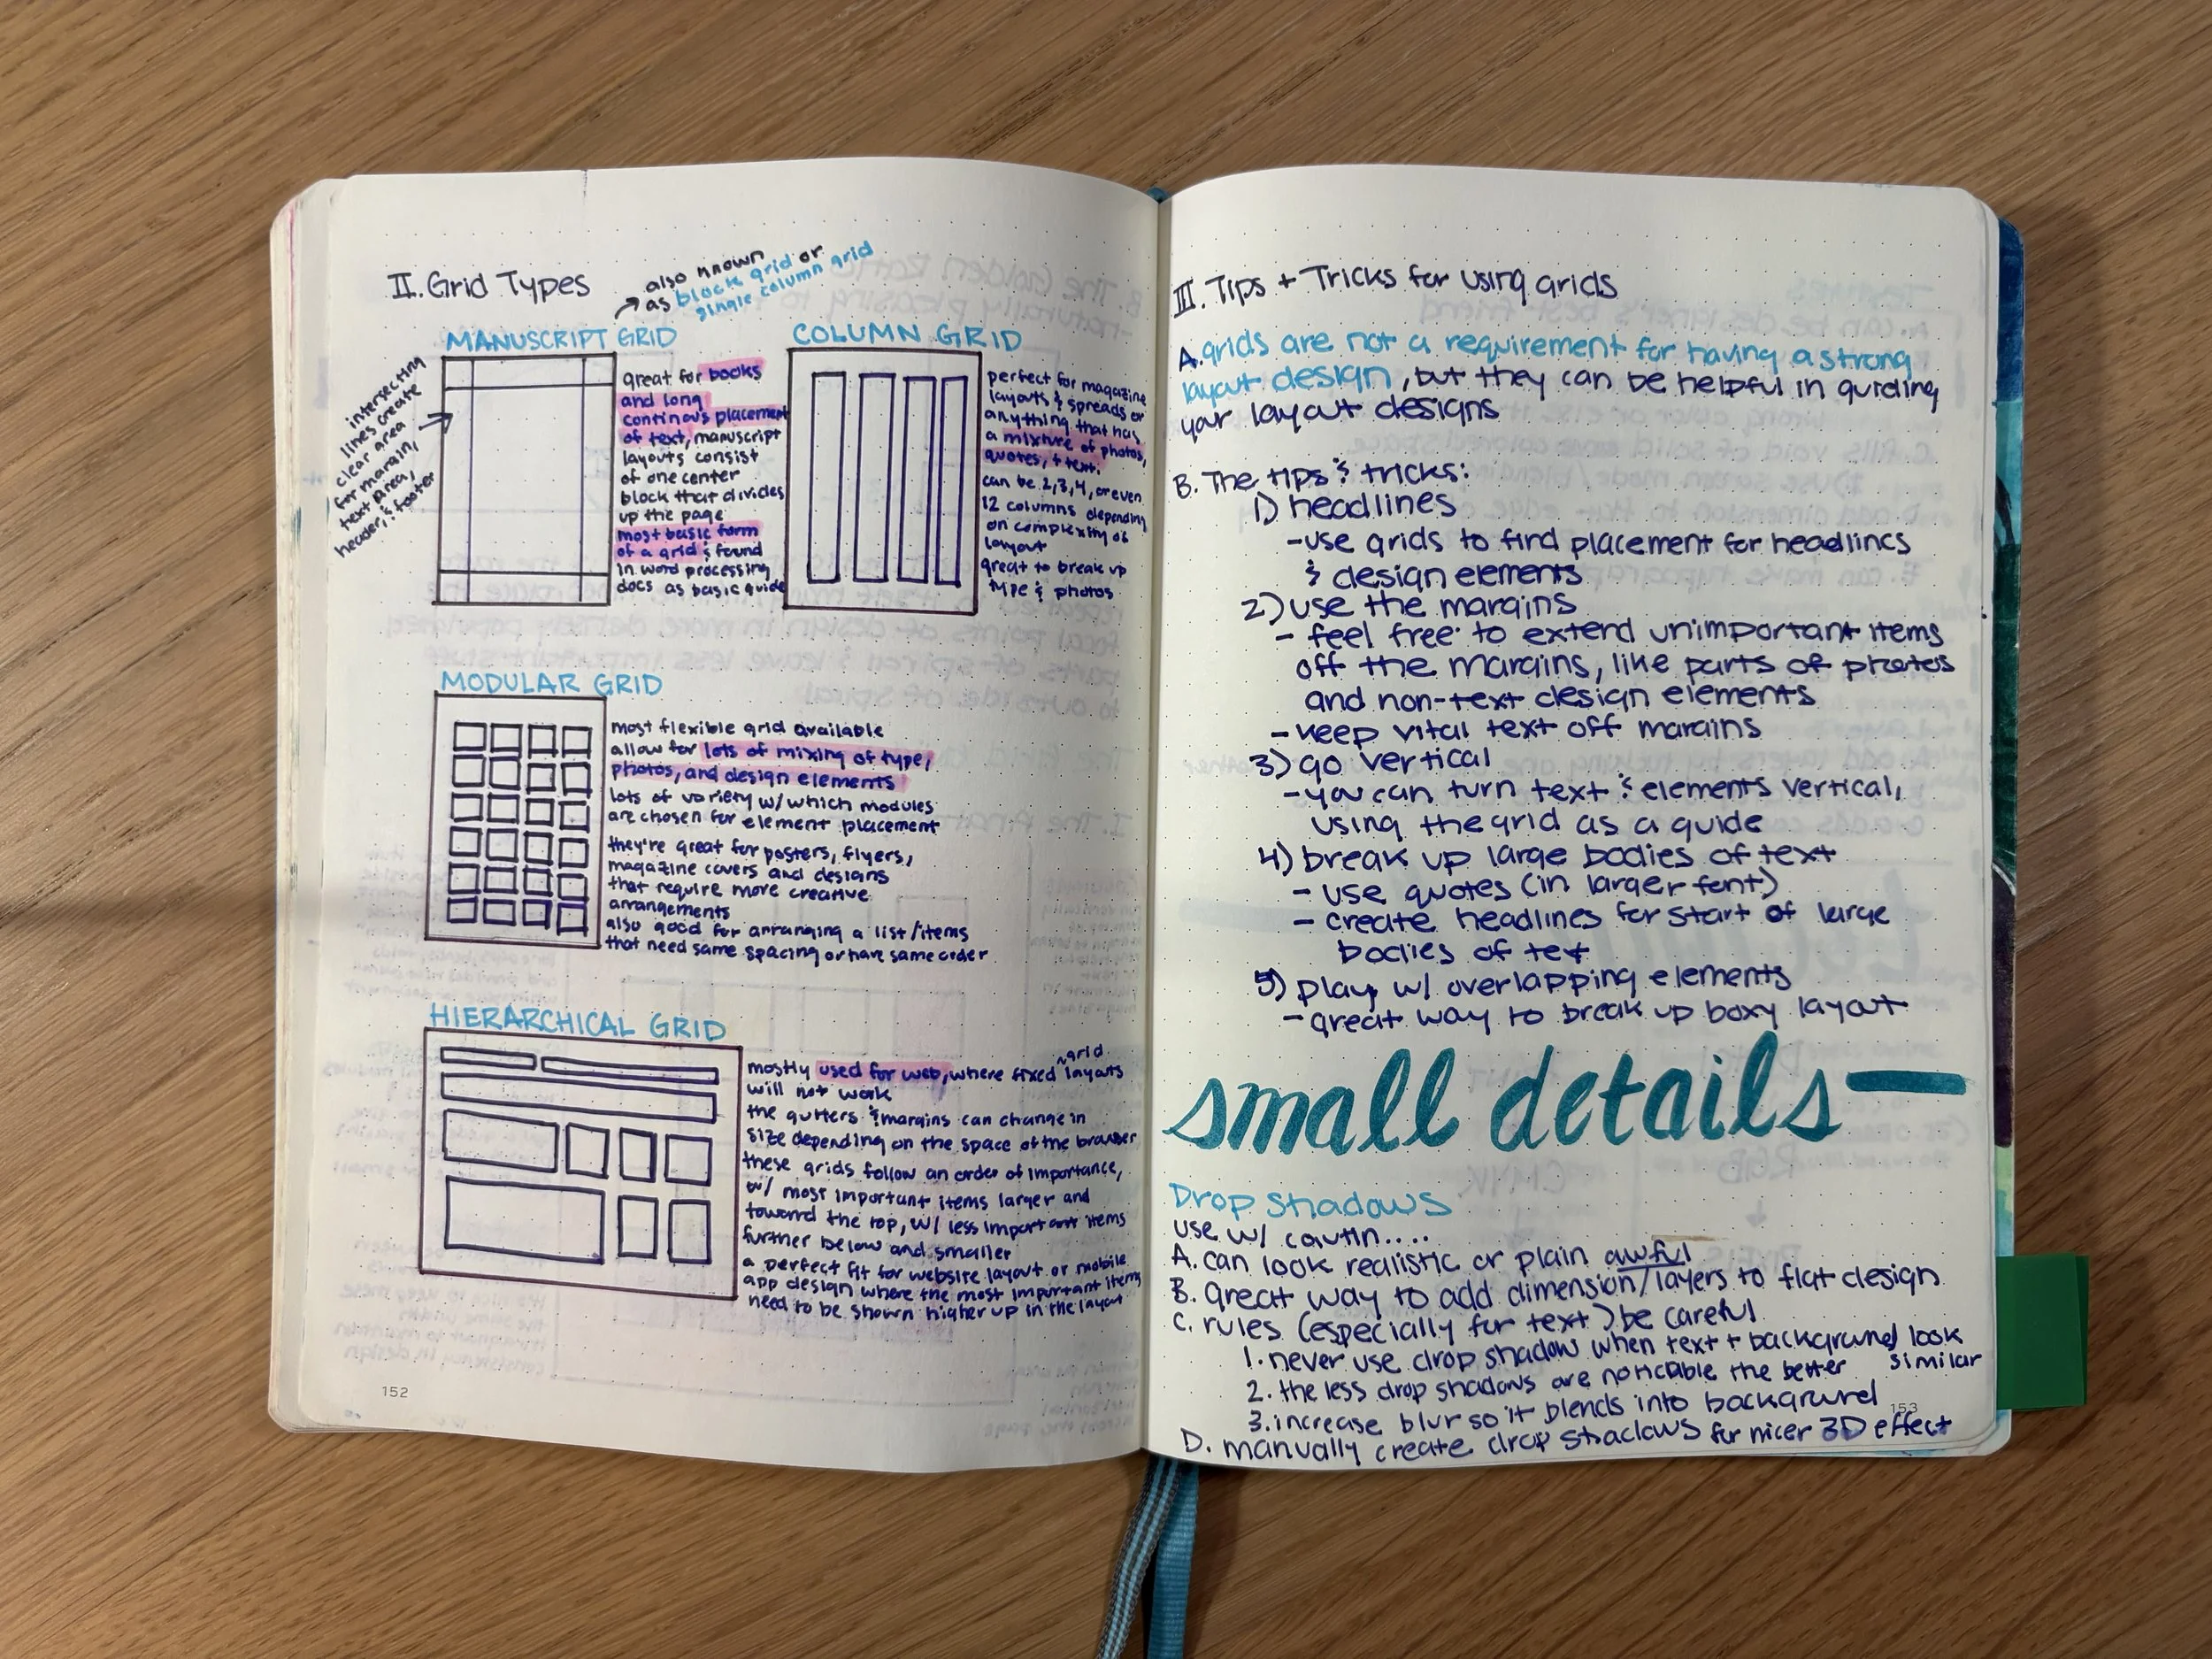 II. Grid Types
also known
as block grid or
single column grid
MANUSCRIPT GRID
intersecting
lines create
clear area
for margin,
text area,
header, & footer
great for books
and long
continous placement
of text, manuscript
layouts consist
of one center
block that divides
up the page
most basic form
of a grid & found
in word processing
docs as basic guide
COLUMN GRID
perfect for magazine
layouts & spreads or
anything that has
a mixture of photos,
quotes, + text.
can be 2,3,4, or even
12 columns depending
on complexity of
layout
great to break up
type & photos
MODULAR GRID
most flexible grid available
allow for lots of mixing of type,
photos, and design elements
lots of variety w/ which modules
are chosen for element placement
they're great for posters, flyers,
magazine covers and designs
that require more creative
arrangements
also good for arranging a list/items
that need same spacing or have same order
HIERARCHICAL GRID
mostly used for web, where fixed ^grid layouts
will not work
the gutters & margins can change in
size depending on the space of the browser
these grids follow an order of importance,
w/ most important items larger and
toward the top, w/ less important items
further below and smaller
a perfect fit for website layout or mobile
app design where the most important items
need to be shown higher up in the layout
152
III. Tips + Tricks for using grids
A. grids are not a requirement for having a strong
layout design, but they can be helpful in guiding
your layout designs
B. The tips & tricks:
1) headlines
-use grids to find placement for headlines
& design elements
2) use the margins
- feel free to extend unimportant items
off the margins, like parts of photos
and non-text design elements
- keep vital text off margins
3) go vertical
- you can turn text & elements vertical,
using the grid as a guide
4) break up large bodies of text
- use quotes (in larger font)
- create headlines for start of large
bodies of text
5) play w/ overlapping elements
- great way to break up boxy layout
small details
Drop Shadows
use w/ cautin....
A. can look realistic or plain awful
B. great way to add dimension/layers to flat design
C. rules (especially for text) be careful
1. never use drop shadow when text + background look
similar
2. the less drop shadows are noticable the better
3. increase blur so it blends into background
153
D. manually create drop shadows for nicer 3D effect